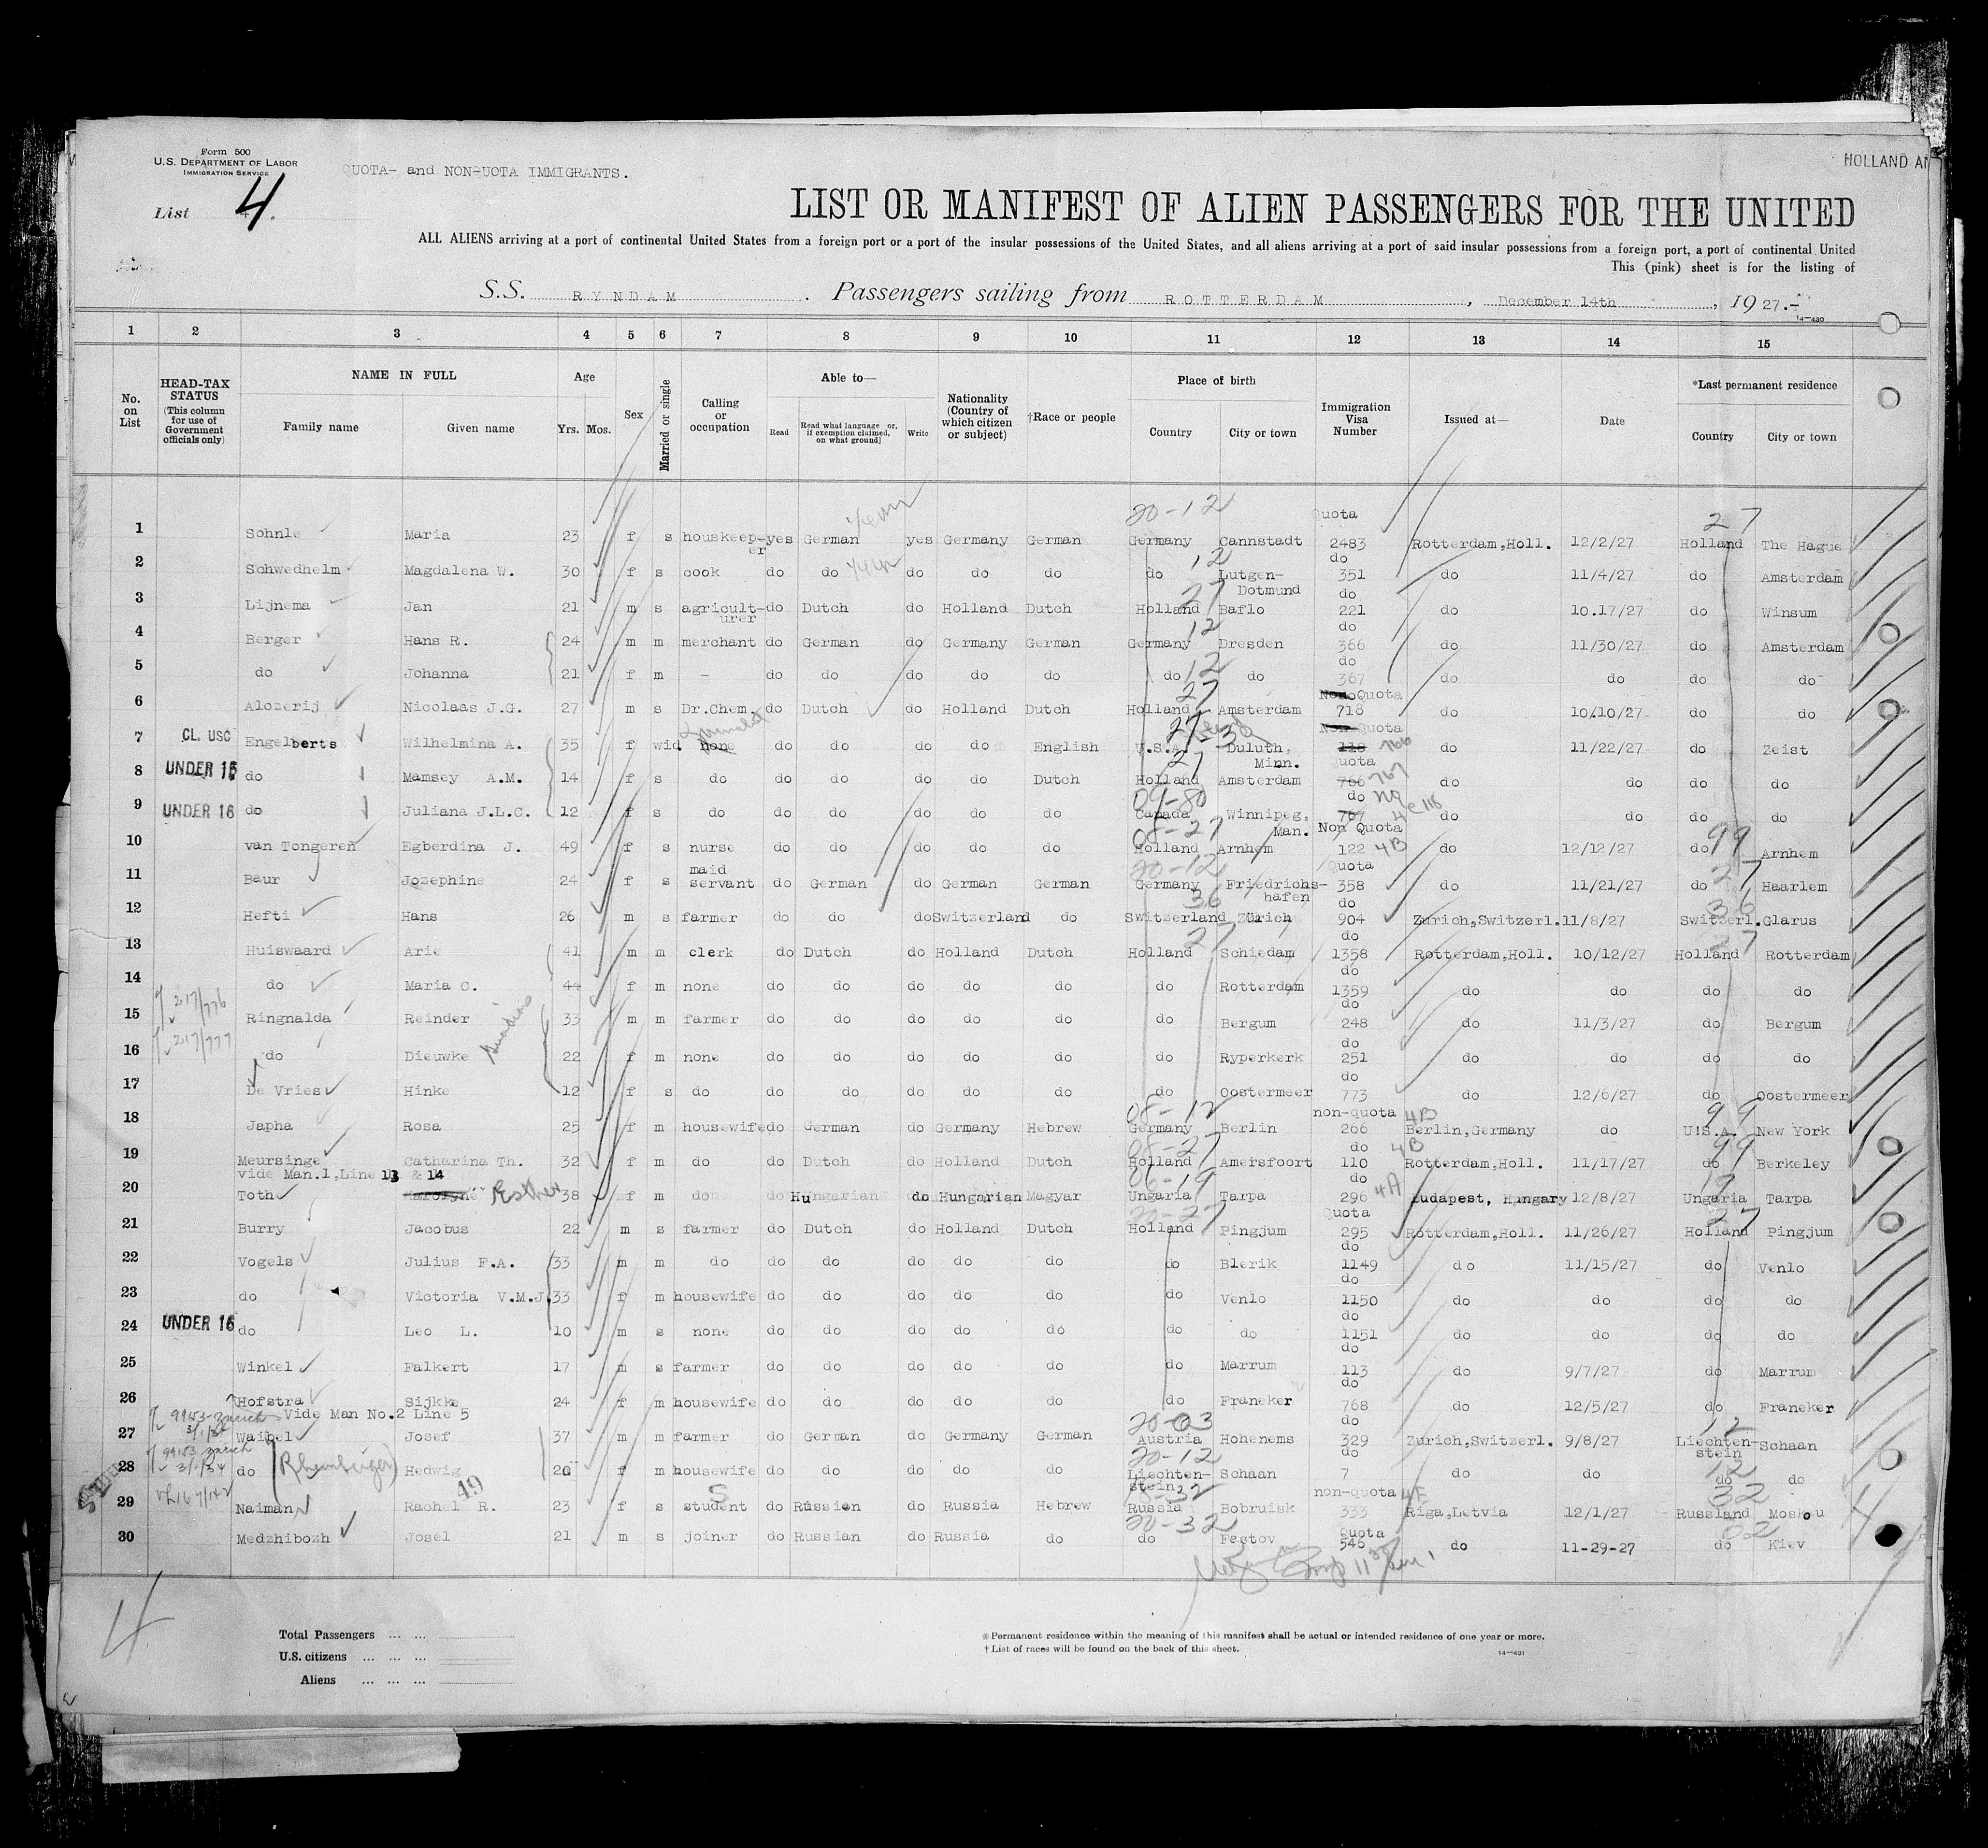 Form 500
U.S. DEPARTMENT OF LABOR
IMMIGRATION SERVICE
QUOTA- and NON-UOTA IMMIGRANTS.
HOLLAND AM
List 4.
LIST OR MANIFEST OF ALIEN PASSENGERS FOR THE UNITED
ALL ALIENS arriving at a port of continental United States from a foreign port or a port of the insular possessions of the United States, and all aliens arriving at a port of said insular possessions from a foreign port, a port of continental United
This (pink) sheet is for the listing of
S.S. RYNDAM . Passengers sailing from ROTTERDAM , December 14th , 19 27.-
14—430
1 2 3 4 5 6 7 8 9 10 11 12 13 14 15
No. on List
HEAD-TAX STATUS (This column for use of Government officials only)
NAME IN FULL
Family name Given name
Age
Yrs. Mos.
Sex
Married or single
Calling or occupation
Able to—
Read Read what language [or, if exemption claimed, on what ground] Write
Nationality (Country of which citizen or subject)
†Race or people
Place of birth
Country City or town
Immigration Visa Number
Issued at—
Date
*Last permanent residence
Country City or town
20-12 Quota 27
1 Sohnle Maria 23 f s houskeep-er yes German yes Germany German Germany Cannstadt 2483 Rotterdam,Holl. 12/2/27 Holland The Hague
12 do
2 Schwedhelm Magdalena W. 30 f s cook do do do do do do Lutgen-Dotmund 351 do 11/4/27 do Amsterdam
27 do
3 Lijnema Jan 21 m s agricult-urer do Dutch do Holland Dutch Holland Baflo 221 do 10.17/27 do Winsum
12 do
4 Berger Hans R. 24 m m merchant do German do Germany German Germany Dresden 366 do 11/30/27 do Amsterdam
12 do
5 do Johanna 21 f m - do do do do do do do 367 do do do do
27 Non Quota
6 Alozerij Nicolaas J.G. 27 m s Dr.Chem. do Dutch do Holland Dutch Holland Amsterdam 718 do 10.10/27 do do
Non Quota
7 CL. USC Engelberts Wilhelmina A. 35 f wid none do do do do English U.S.A. Duluth, Minn. 118 766 do 11/22/27 do Zeist
27 Quota
8 UNDER 16 do Mamsey A.M. 14 f s do do do do do Dutch Holland Amsterdam 766 767 do do do do
09-80 do NQ
9 UNDER 16 do Juliana J.L.C. 12 f s do do do do do do Canada Winnipeg, Man. 767 4C 118 do do do do
08-27 Non Quota 99
10 van Tongeren Egberdina J. 49 f s nurse do do do do do Holland Arnhem 122 4B do 12/12/27 do Arnhem
20-12 Quota 27
11 Baur Jozephine 24 f s maid servant do German do German German Germany Friedrichs-hafen 358 do 11/21/27 do Haarlem
36 do 36
12 Hefti Hans 26 m s farmer do do do Switzerland do Switzerland Zürich 904 Zurich,Switzerl. 11/8/27 Switzerl. Glarus
27 do 27
13 Huiswaard Arie 41 m m clerk do Dutch do Holland Dutch Holland Schiedam 1358 Rotterdam,Holl. 10/12/27 Holland Rotterdam
do
14 do Maria C. 44 f m none do do do do do do Rotterdam 1359 do do do do
do
15 217/776 Ringnalda Reinder 33 m m farmer do do do do do do Bergum 248 do 11/3/27 do Bergum
do
16 217/777 do Dieuwke 22 f m none do do do do do do Ryperkerk 251 do do do do
do
17 De Vries Hinke 12 f s do do do do do do do Oostermeer 773 do 12/6/27 do Oostermeer
08-12 non-quota 4B 99
18 Japha Rosa 25 f m housewife do German do Germany Hebrew Germany Berlin 266 Berlin,Germany do U.S.A. New York
08-27 do 4B 99
19 Meursinge Catharina Th. 32 f m do do Dutch do Holland Dutch Holland Amersfoort 110 Rotterdam,Holl. 11/17/27 do Berkeley
vide Man.1,Line 13 & 14
06-19 do 19
20 Toth Esther 38 f m do do Hungarian do Hungarian Magyar Ungaria Tarpa 296 4A Budapest, Hungary 12/8/27 Ungaria Tarpa
20-27 Quota 27
21 Burry Jacobus 22 m s farmer do Dutch do Holland Dutch Holland Pingjum 295 Rotterdam,Holl. 11/26/27 Holland Pingjum
do
22 Vogels Julius F.A. 33 m m do do do do do do do Blerik 1149 do 11/15/27 do Venlo
do
23 do Victoria V.M.J. 33 f m housewife do do do do do do Venlo 1150 do do do do
do
24 UNDER 16 do Leo L. 10 m s none do do do do do do do 1151 do do do do
do
25 Winkel Falkert 17 m s farmer do do do do do do Marrum 113 do 9/7/27 do Marrum
do
26 Hofstra Sijkke 24 f m housewife do do do do do do Franeker 768 do 12/5/27 do Franeker
Vide Man No.2 Line 5
20-03 do 12
27 Waibel Josef 37 m m farmer do German do Germany German Austria Hohenems 329 Zurich,Switzerl. 9/8/27 Liechten-stein Schaan
20-12 do 12
28 do (Rheinberger) Hedwig f m housewife do do do do do Liechten-stein Schaan 7 do do do do
non-quota 4E 32
29 Naiman Rachel R. 23 f s student do Russian do Russia Hebrew Russia Bobruisk 333 Riga,Letvia 12/1/27 Russland Moskou
20-32 Quota
30 Medzhibozh Josel 21 m s joiner do Russian do Russia do do Fastov 546 do 11-29-27 do Kiev
4
Total Passengers ... ...
U.S. citizens ... ... ...
Aliens ... ... ...
※ Permanent residence within the meaning of this manifest shall be actual or intended residence of one year or more.
† List of races will be found on the back of this sheet.
14—431